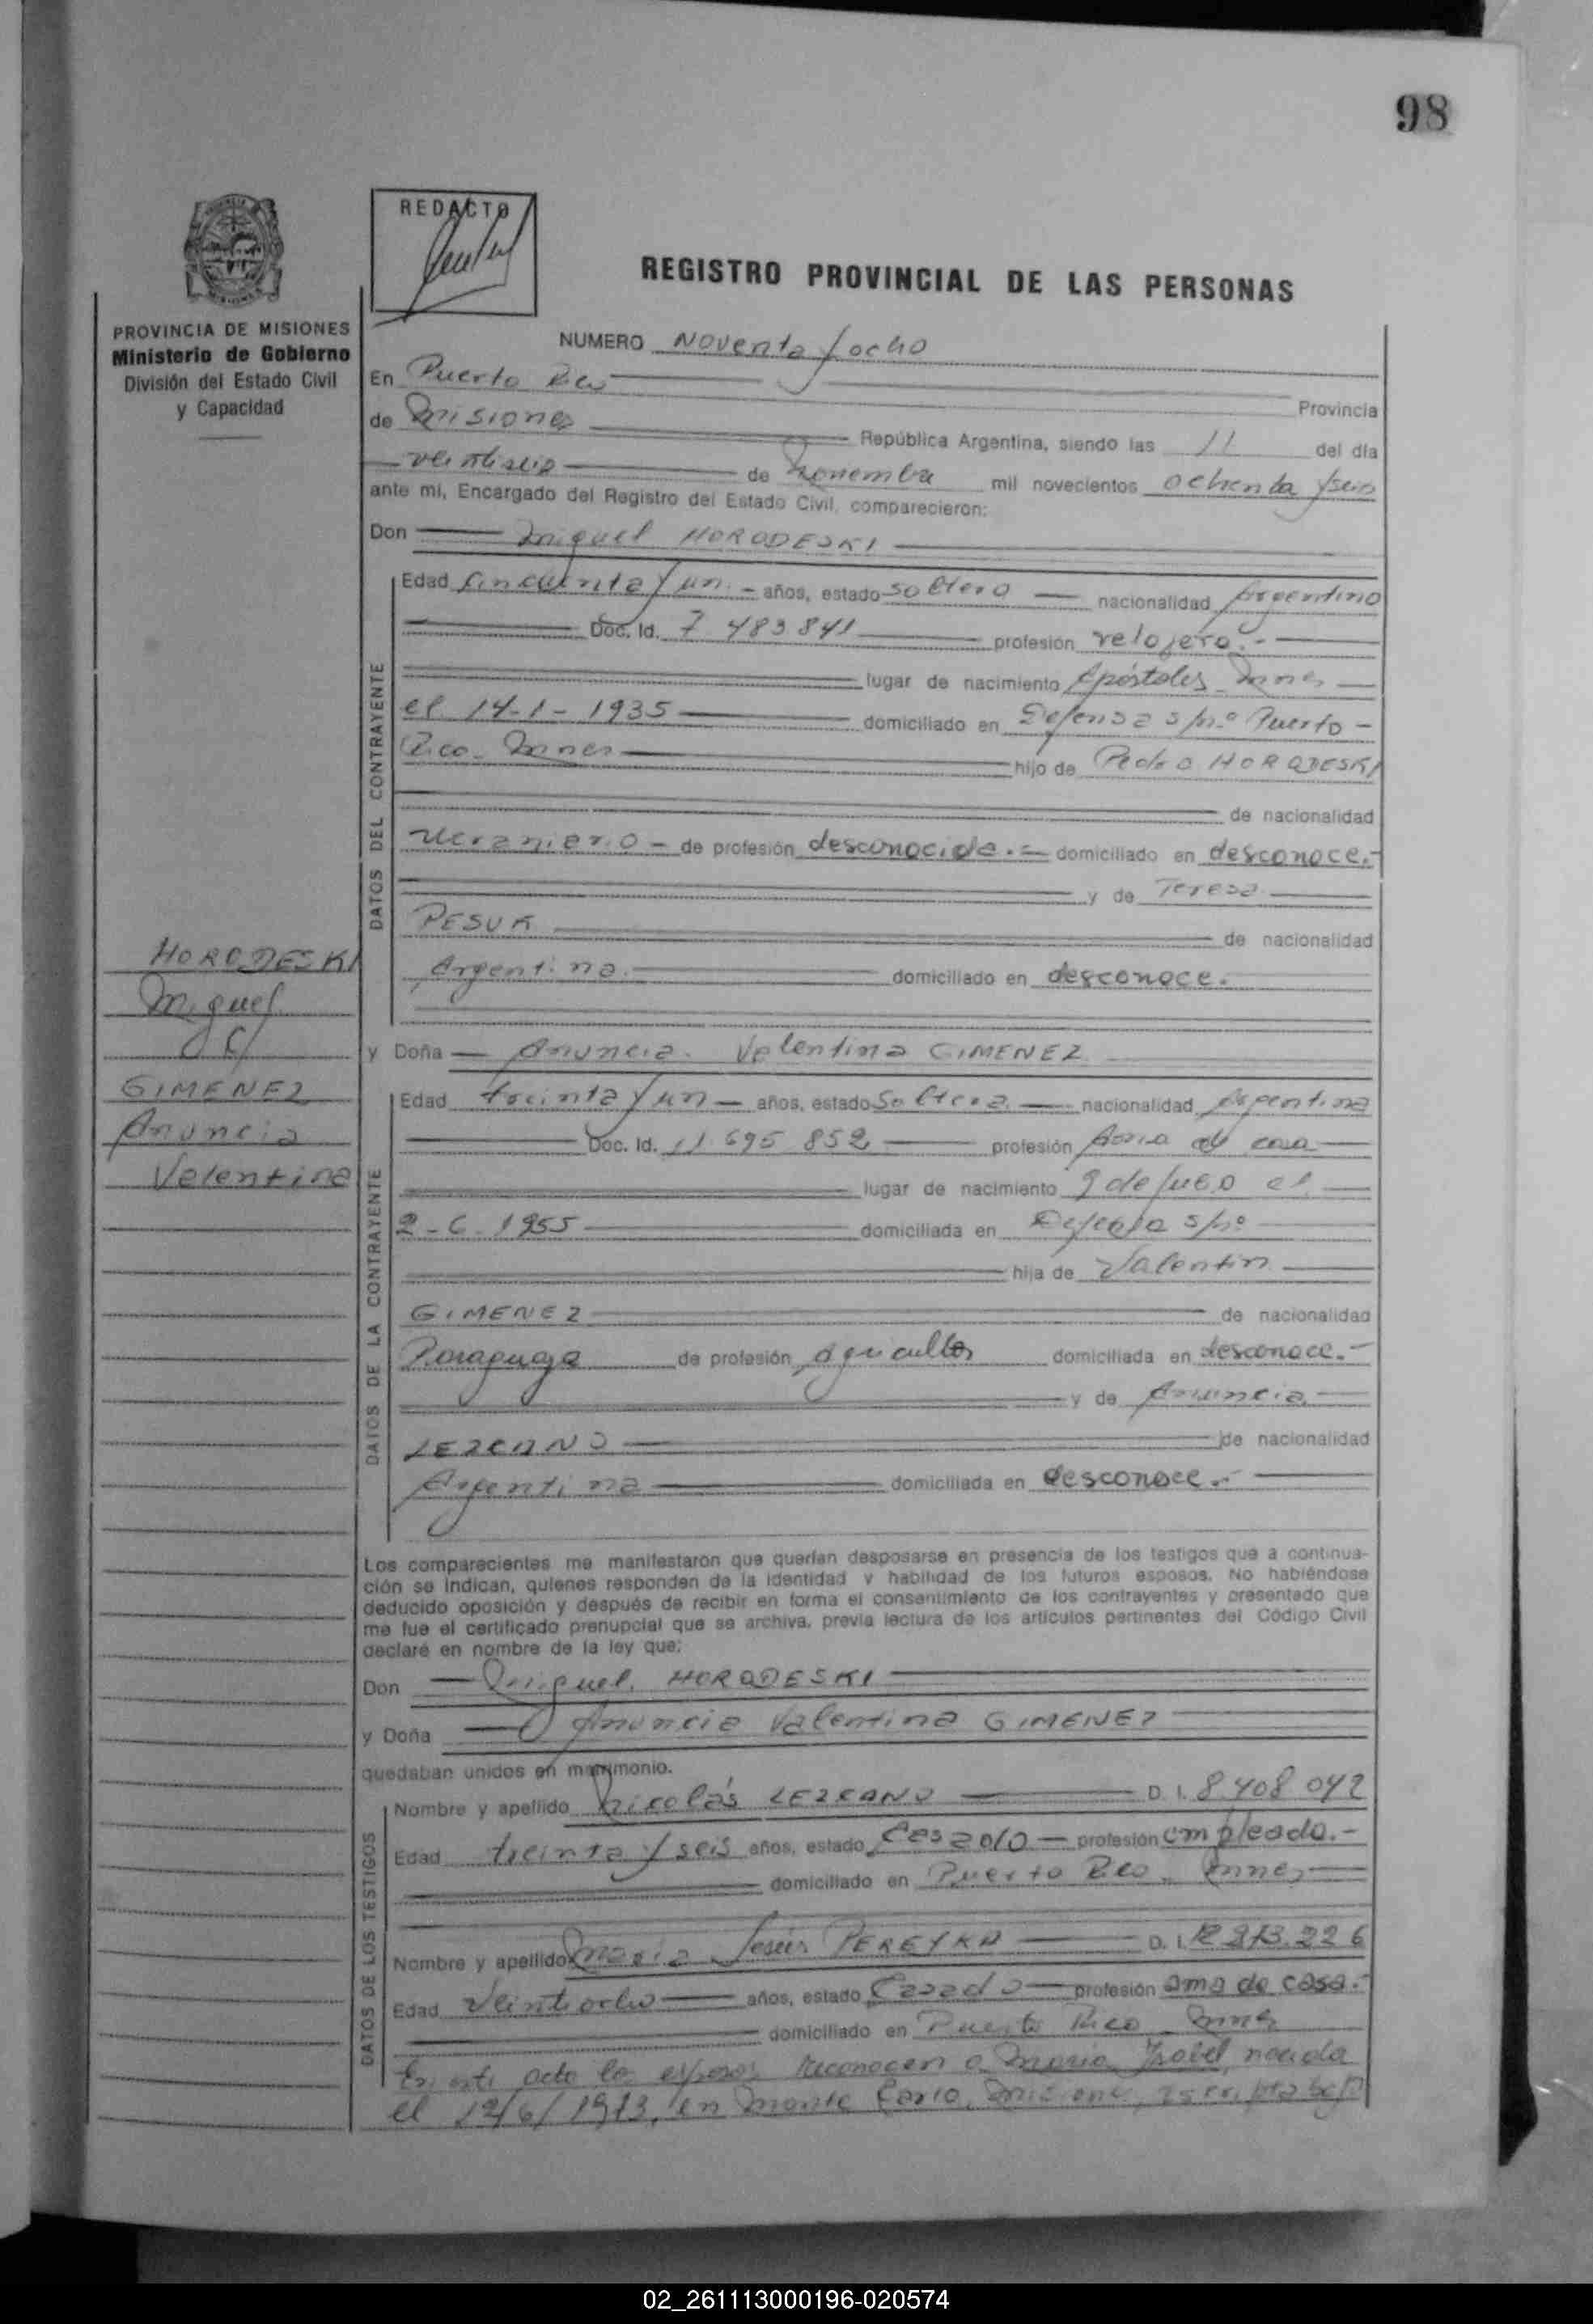 98
REDACTO
REGISTRO PROVINCIAL DE LAS PERSONAS
PROVINCIA DE MISIONES
Ministerio de Gobierno
División del Estado Civil
y Capacidad
NUMERO Noventa y ocho
En Puerto Rico
Provincia
de Misiones República Argentina, siendo las 11 del día
veintiseis de Noviembre mil novecientos ochenta y seis
ante mí, Encargado del Registro del Estado Civil, comparecieron:
Don Miguel HORODESKI
DATOS DEL CONTRAYENTE
Edad cincuenta y un.- años, estado soltero nacionalidad Argentino
Doc. Id. 7 483 841 profesión relojero.-
lugar de nacimiento Apóstoles Mnes
el 14-1-1935 domiciliado en Defensa s/nº Puerto -
Rico - Mnes hijo de Pedro HORODESKI
de nacionalidad
Ucraniero - de profesión desconocida.- domiciliado en desconoce.-
y de Teresa
PESUK de nacionalidad
Argentina. domiciliado en desconoce.
HORODESKI
Miguel
c/
GIMENEZ
Anuncia
Valentina
y Doña Anuncia Valentina GIMENEZ
DATOS DE LA CONTRAYENTE
Edad treinta y un - años, estado Soltera nacionalidad Argentina
Doc. Id. 11.695 852 profesión Ama de casa
lugar de nacimiento 9 de Julio el
2-6-1955 domiciliada en Defensa s/nº
hija de Valentin
GIMENEZ de nacionalidad
Paraguaya de profesión agricultor domiciliada en desconoce.-
y de Anuncia
LEZCANO de nacionalidad
Argentina domiciliada en desconoce.-
Los comparecientes me manifestaron que querían desposarse en presencia de los testigos que a continua-
ción se indican, quienes responden de la identidad y habilidad de los futuros esposos. No habiéndose
deducido oposición y después de recibir en forma el consentimiento de los contrayentes y presentado que
me fue el certificado prenupcial que se archiva, previa lectura de los artículos pertinentes del Código Civil
declaré en nombre de la ley que:
Don Miguel HORODESKI
y Doña Anuncia Valentina GIMENEZ
quedaban unidos en matrimonio.
DATOS DE LOS TESTIGOS
Nombre y apellido Nicolás LEZCANO D. I. 8.408 042
Edad treinta y seis años, estado Casado - profesión empleado.-
domiciliado en Puerto Rico - Mnes
Nombre y apellido María Jesús PEREYRA D. I. 12 373.226
Edad Veintiocho años, estado Casada profesión ama de casa.-
domiciliado en Puerto Rico Mnes
En este acto los esposos reconocen a Maria Isabel nacida
el 12/6/1973, en Monte Carlo, Misiones, bajo
02_261113000196-020574